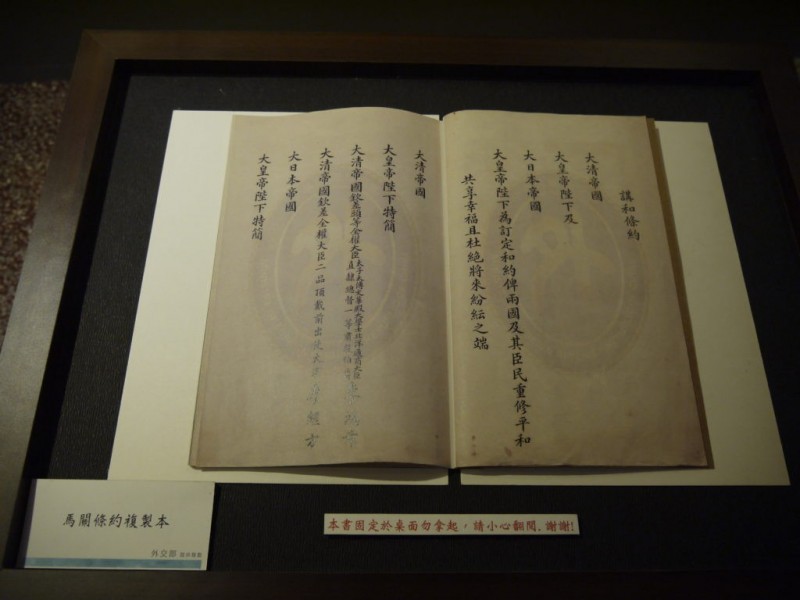 講和條約
大清帝國
大皇帝陛下及
大日本帝國
大皇帝陛下為訂定和約俾兩國及其臣民重修平和
共享幸福且杜絕將來紛紜之端
大清帝國
大皇帝陛下特簡
大清帝國欽差頭等全權大臣
太子太傅文華殿大學士北洋通商大臣
直隸總督一等肅毅伯
李鴻章
大清帝國欽差全權大臣二品頂戴前出使大臣李經方
大日本帝國
大皇帝陛下特簡
馬關條約複製本
外交部
本書固定於桌面勿拿起，請小心翻閱,謝謝!